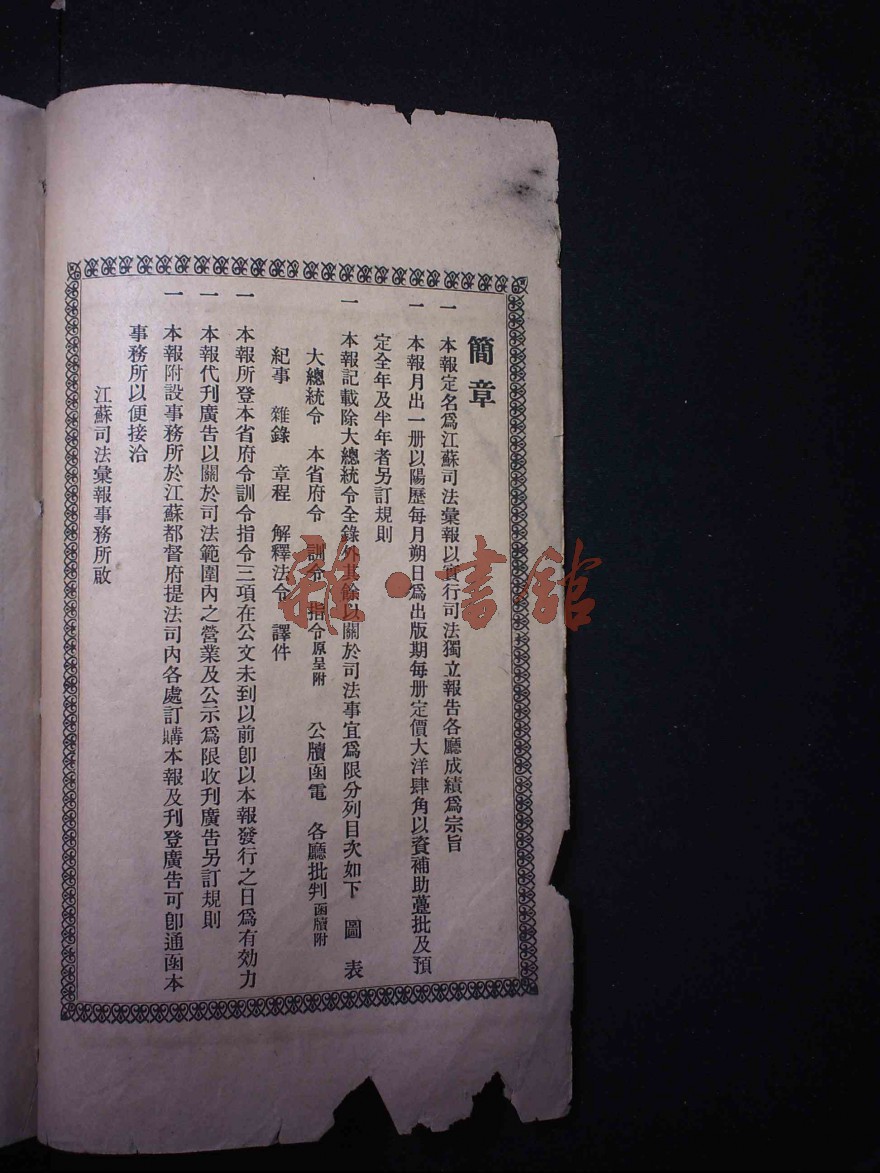 簡章
一 本報定名爲江蘇司法彙報以實行司法獨立報告各廳成績爲宗旨
一 本報月出一册以陽歷每月朔日爲出版期每册定價大洋肆角以資補助躉批及預
定全年及半年者另訂規則
一 本報記載除大總統令全錄外其餘以關於司法事宜爲限分列目次如下 圖 表
大總統令 本省府令 訓令 指令原呈附 公牘函電 各廳批判函牘附
紀事 雜錄 章程 解釋法令 譯件
一 本報所登本省府令訓令指令三項在公文未到以前卽以本報發行之日爲有効力
一 本報代刊廣告以關於司法範圍內之營業及公示爲限收刊廣告另訂規則
一 本報附設事務所於江蘇都督府提法司內各處訂購本報及刊登廣告可卽通函本
事務所以便接洽
江蘇司法彙報事務所啟
雜·書館